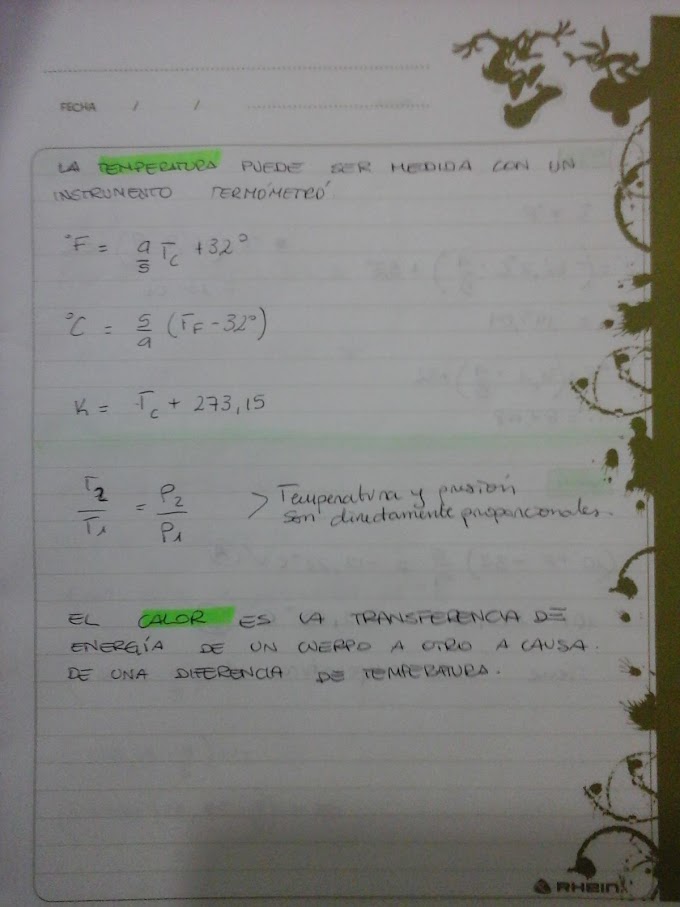 FECHA / /
LA TEMPERATURA PUEDE SER MEDIDA CON UN
INSTRUMENTO TERMÓMETRÓ
°F = 9/5 Tc + 32°
°C = 5/9 (TF - 32°)
K = Tc + 273,15
T2/T1 = P2/P1 > Temperatura y presión
son directamente proporcionales.
EL CALOR ES LA TRANSFERENCIA DE
ENERGÍA DE UN CUERPO A OTRO A CAUSA.
DE UNA DIFERENCIA DE TEMPERATURA.
RHEIN